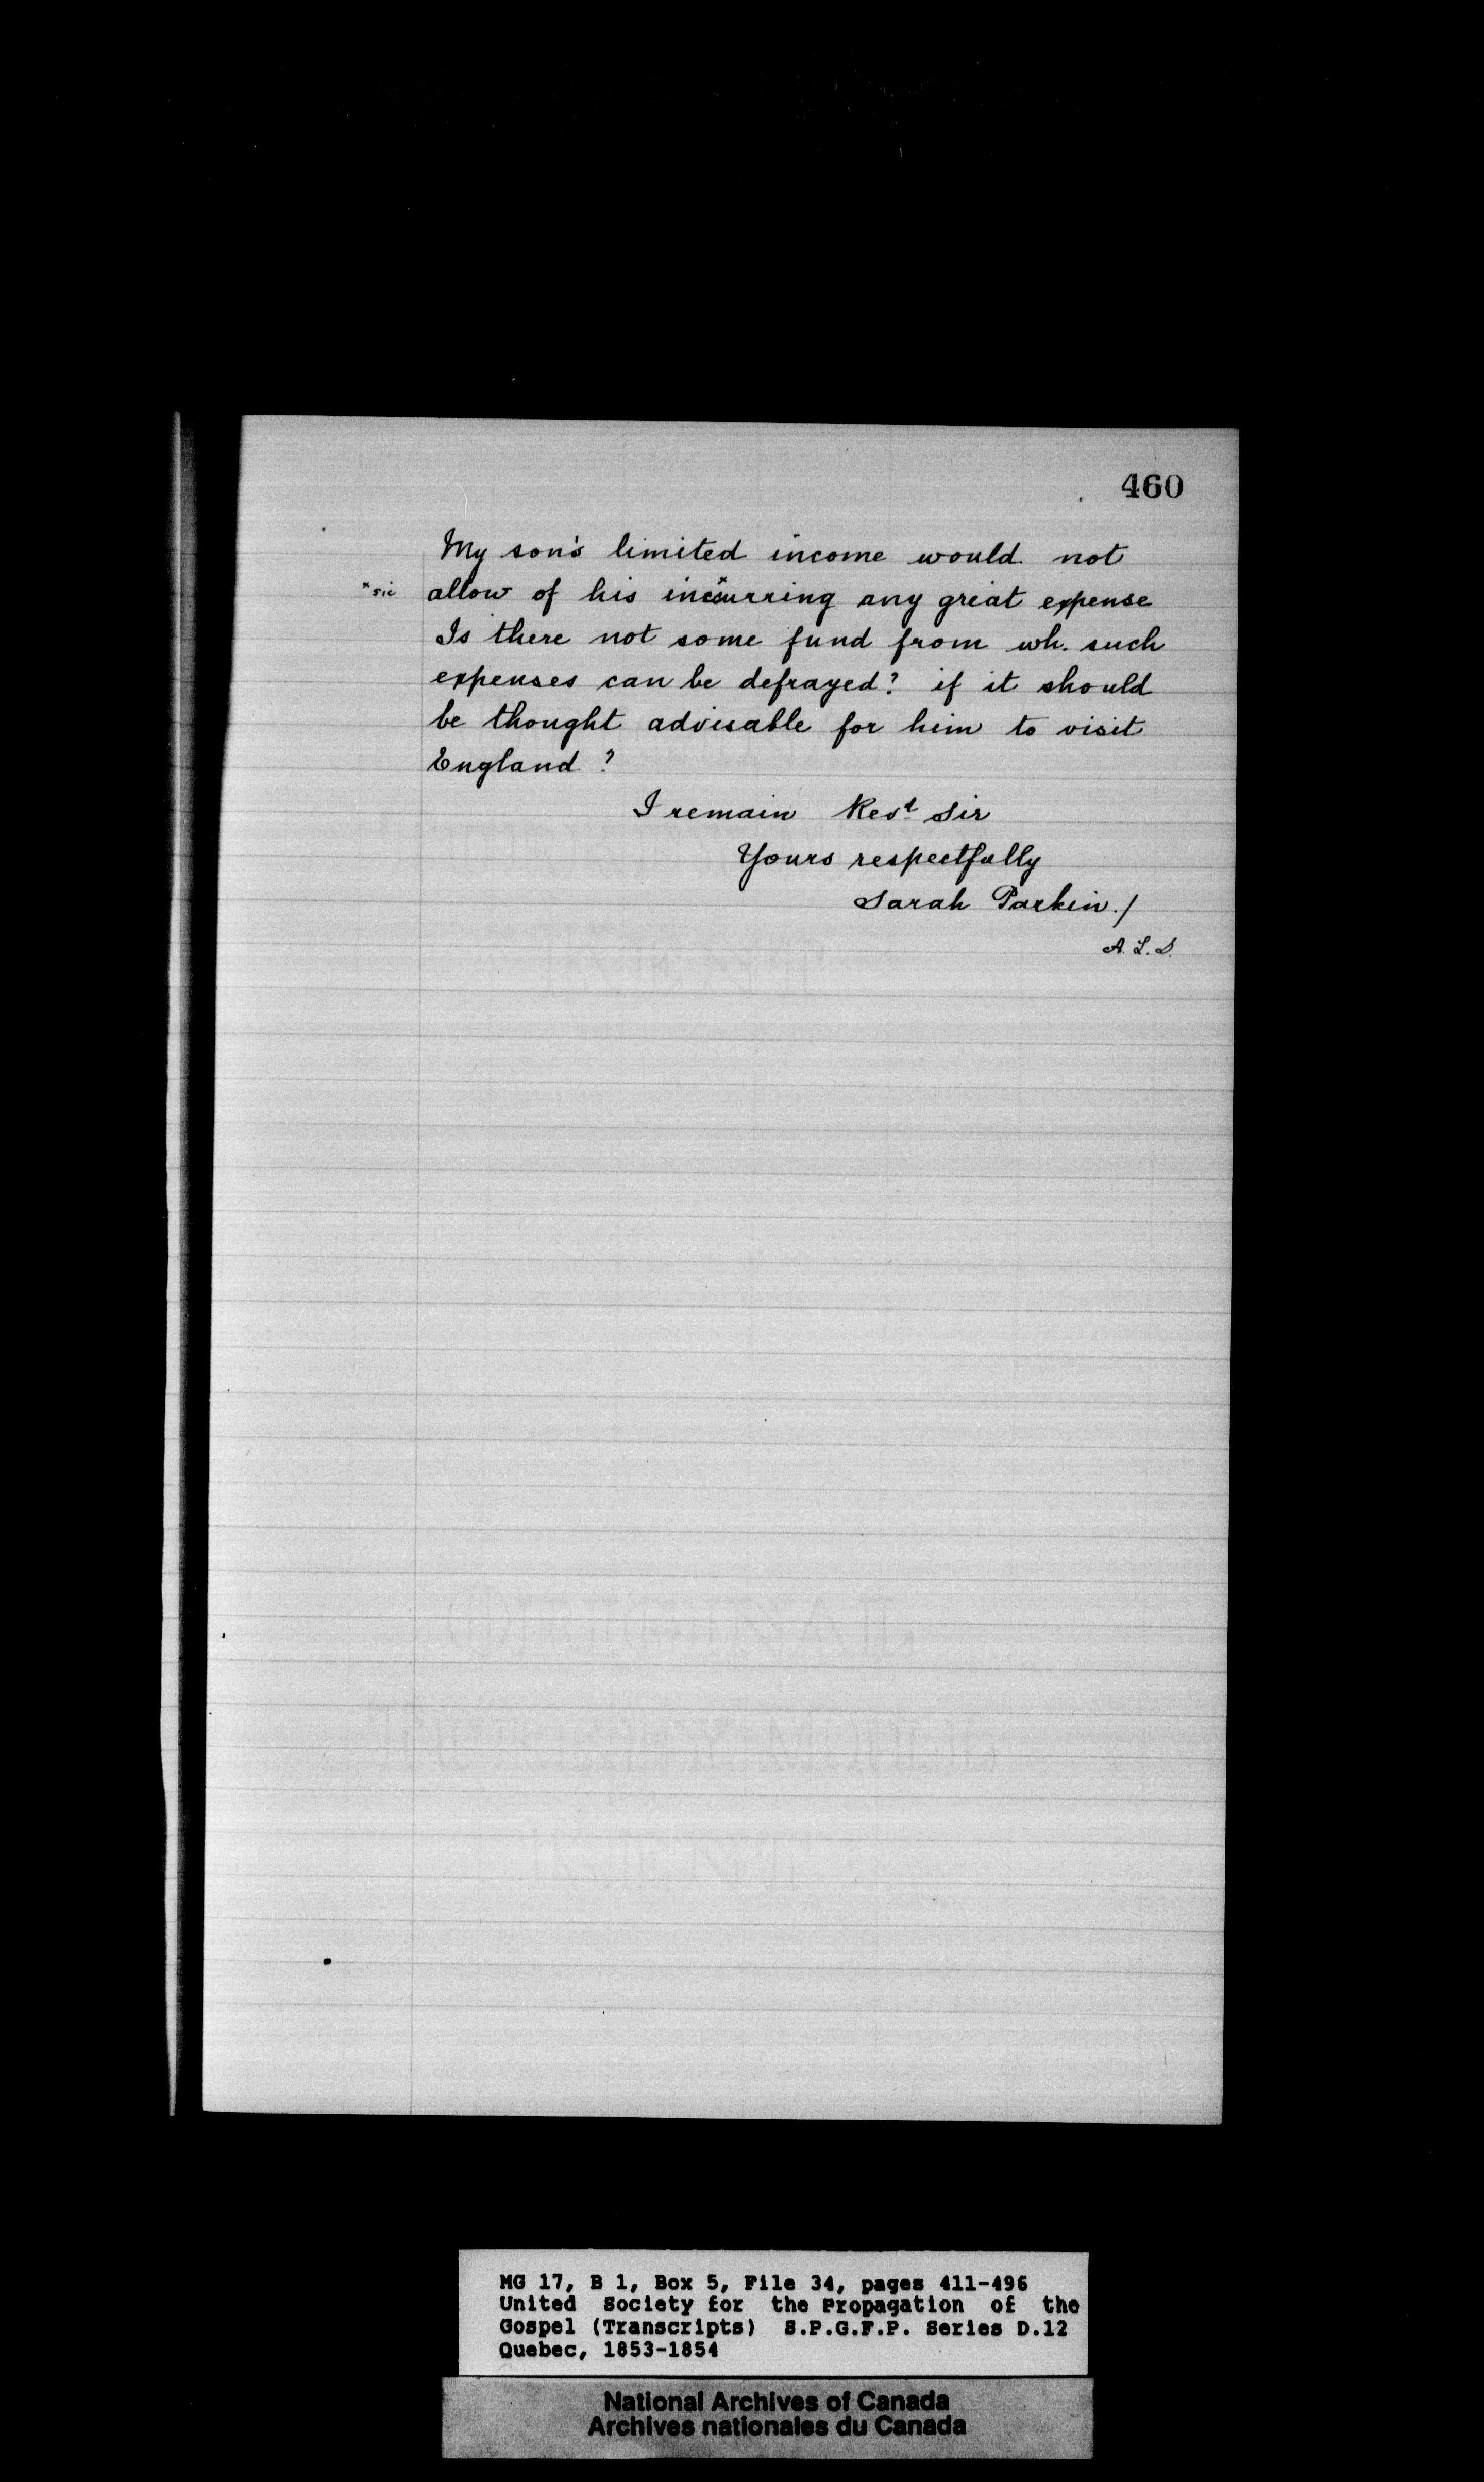 460
My son's limited income would not
*sic allow of his incurring* any great expense
Is there not some fund from wh. such
expenses can be defrayed? if it should
be thought advisable for him to visit
England?
I remain Revd Sir
Yours respectfully
Sarah Parkin./
A.L.S.
MG 17, B 1, Box 5, File 34, pages 411-496
United Society for the Propagation of the
Gospel (Transcripts) S.P.G.F.P. Series D.12
Quebec, 1853-1854
National Archives of Canada
Archives nationales du Canada